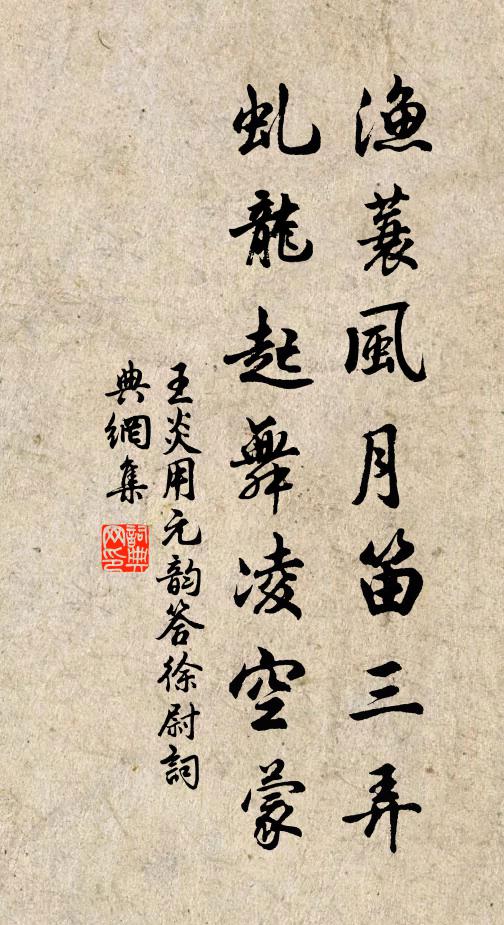 漁蓑風月笛三弄
虬龍起舞凌空蒙
王炎用元韵答徐尉詞
典網集
詞典网印